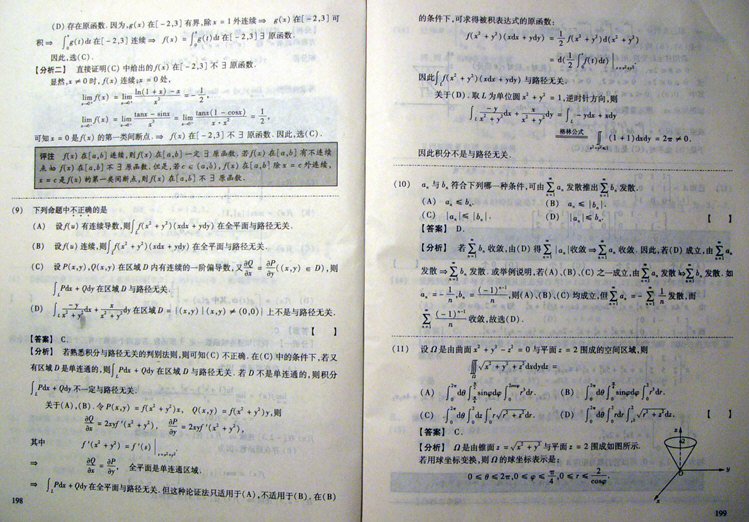 (D) 存在原函数. 因为, g(x) 在[-2,3] 有界, 除 x = 1 外连续 ⇒ g(x) 在[-2,3] 可
积 ⇒ ∫₀ˣ g(t)dt 在[-2,3] 连续 ⇒ f(x) = ∫₀ˣ g(t)dt 在[-2,3] ∃ 原函数.
因此, 选(C).
【分析二】 直接证明(C) 中给出的 f(x) 在[-2,3] 不 ∃ 原函数.
显然, x ≠ 0 时, f(x) 连续; x = 0 处,
可知 x = 0 是 f(x) 的第一类间断点. ⇒ f(x) 在[-2,3] 不 ∃ 原函数. 因此, 选(C).
评注 f(x) 在[a,b] 连续, 则 f(x) 在[a,b] 一定 ∃ 原函数. 若 f(x) 在[a,b] 有不连续
点 f(x) 在[a,b] 不 ∃ 原函数. 但是, 若 c ∈ (a,b), f(x) 在[a,b] 除 x = c 外连续,
x = c 是 f(x) 的第一类间断点, 则 f(x) 在[a,b] 不 ∃ 原函数.
(9) 下列命题中不正确的是
(A) 设 f(u) 有连续导数, 则∫_L f(x² + y²)(xdx + ydy) 在全平面与路径无关.
(B) 设 f(u) 连续, 则∫_L f(x² + y²)(xdx + ydy) 在全平面与路径无关.
(C) 设 P(x,y), Q(x,y) 在区域 D 内有连续的一阶偏导数, 又 ∂Q/∂x = ∂P/∂y ((x,y) ∈ D), 则
∫_L Pdx + Qdy 在区域 D 与路径无关.
(D) ∫_L -y/(x² + y²) dx + x/(x² + y²) dy 在区域 D = {(x,y) | (x,y) ≠ (0,0)} 上不是与路径无关.
【 】
【答案】 C.
【分析】 若熟悉积分与路径无关的判别法则, 则可知(C) 不正确. 在(C) 中的条件下, 若又
有区域 D 是单连通的, 则∫_L Pdx + Qdy 在区域 D 与路径无关. 若 D 不是单连通的, 则积分
∫_L Pdx + Qdy 不一定与路径无关.
关于(A), (B). 令 P(x,y) = f(x² + y²)x, Q(x,y) = f(x² + y²)y, 则
∂Q/∂x = 2xyf′(x² + y²), ∂P/∂y = 2xyf′(x² + y²),
其中 f′(x² + y²) = f′(s)|_{s=x²+y²}
⇒ ∂Q/∂x = ∂P/∂y, 全平面是单连通区域.
⇒ ∫_L Pdx + Qdy 在全平面与路径无关. 但这种论证法只适用于(A), 不适用于(B). 在(B)
198
的条件下, 可求得被积表达式的原函数:
f(x² + y²)(xdx + ydy) = 1/2 f(x² + y²)d(x² + y²)
因此∫_L f(x² + y²)(xdx + ydy) 与路径无关.
关于(D). 取 L 为单位圆 x² + y² = 1, 逆时针方向, 则
∫_L -y/(x² + y²) dx + x/(x² + y²) dy = ∫_L -ydx + xdy
格林公式 ∬ (1 + 1)dxdy = 2π ≠ 0.
因此积分不是与路径无关.
(10) aₙ 与 bₙ 符合下列哪一种条件, 可由 ∑ aₙ 发散推出 ∑ bₙ 发散.
(A) aₙ ≤ bₙ. (B) aₙ ≤ |bₙ|.
(C) |aₙ| ≤ |bₙ|. (D) |aₙ| ≤ bₙ. 【 】
【答案】 D.
【分析】 若 ∑ bₙ 收敛, 由(D) 得 ∑ |aₙ| 收敛 ⇒ ∑ aₙ 收敛. 因此, 若(D) 成立, 由 ∑ aₙ
发散 ⇒ ∑ bₙ 发散. 或举例说明, 若(A)、(B)、(C) 之一成立, 由 ∑ aₙ 发散 ⇏ ∑ bₙ 发散. 如
aₙ = -1/n, bₙ = (-1)ⁿ⁻¹/n, 则(A)、(B)、(C) 均成立, 但 ∑ aₙ = -∑ 1/n 发散, 而
∑ (-1)ⁿ⁻¹/n 收敛, 故选(D).
(11) 设 Ω 是由曲面 x² + y² - z² = 0 与平面 z = 2 围成的空间区域, 则
∭_Ω √(x² + y² + z²) dxdydz =
【 】
【答案】 C.
【分析】 Ω 是由锥面 z = √(x² + y²) 与平面 z = 2 围成如图所示.
若用球坐标变换, 则 Ω 的球坐标表示是:
0 ≤ θ ≤ 2π, 0 ≤ φ ≤ π/4, 0 ≤ r ≤ 2/cosφ.
z
2
O
y
x
199